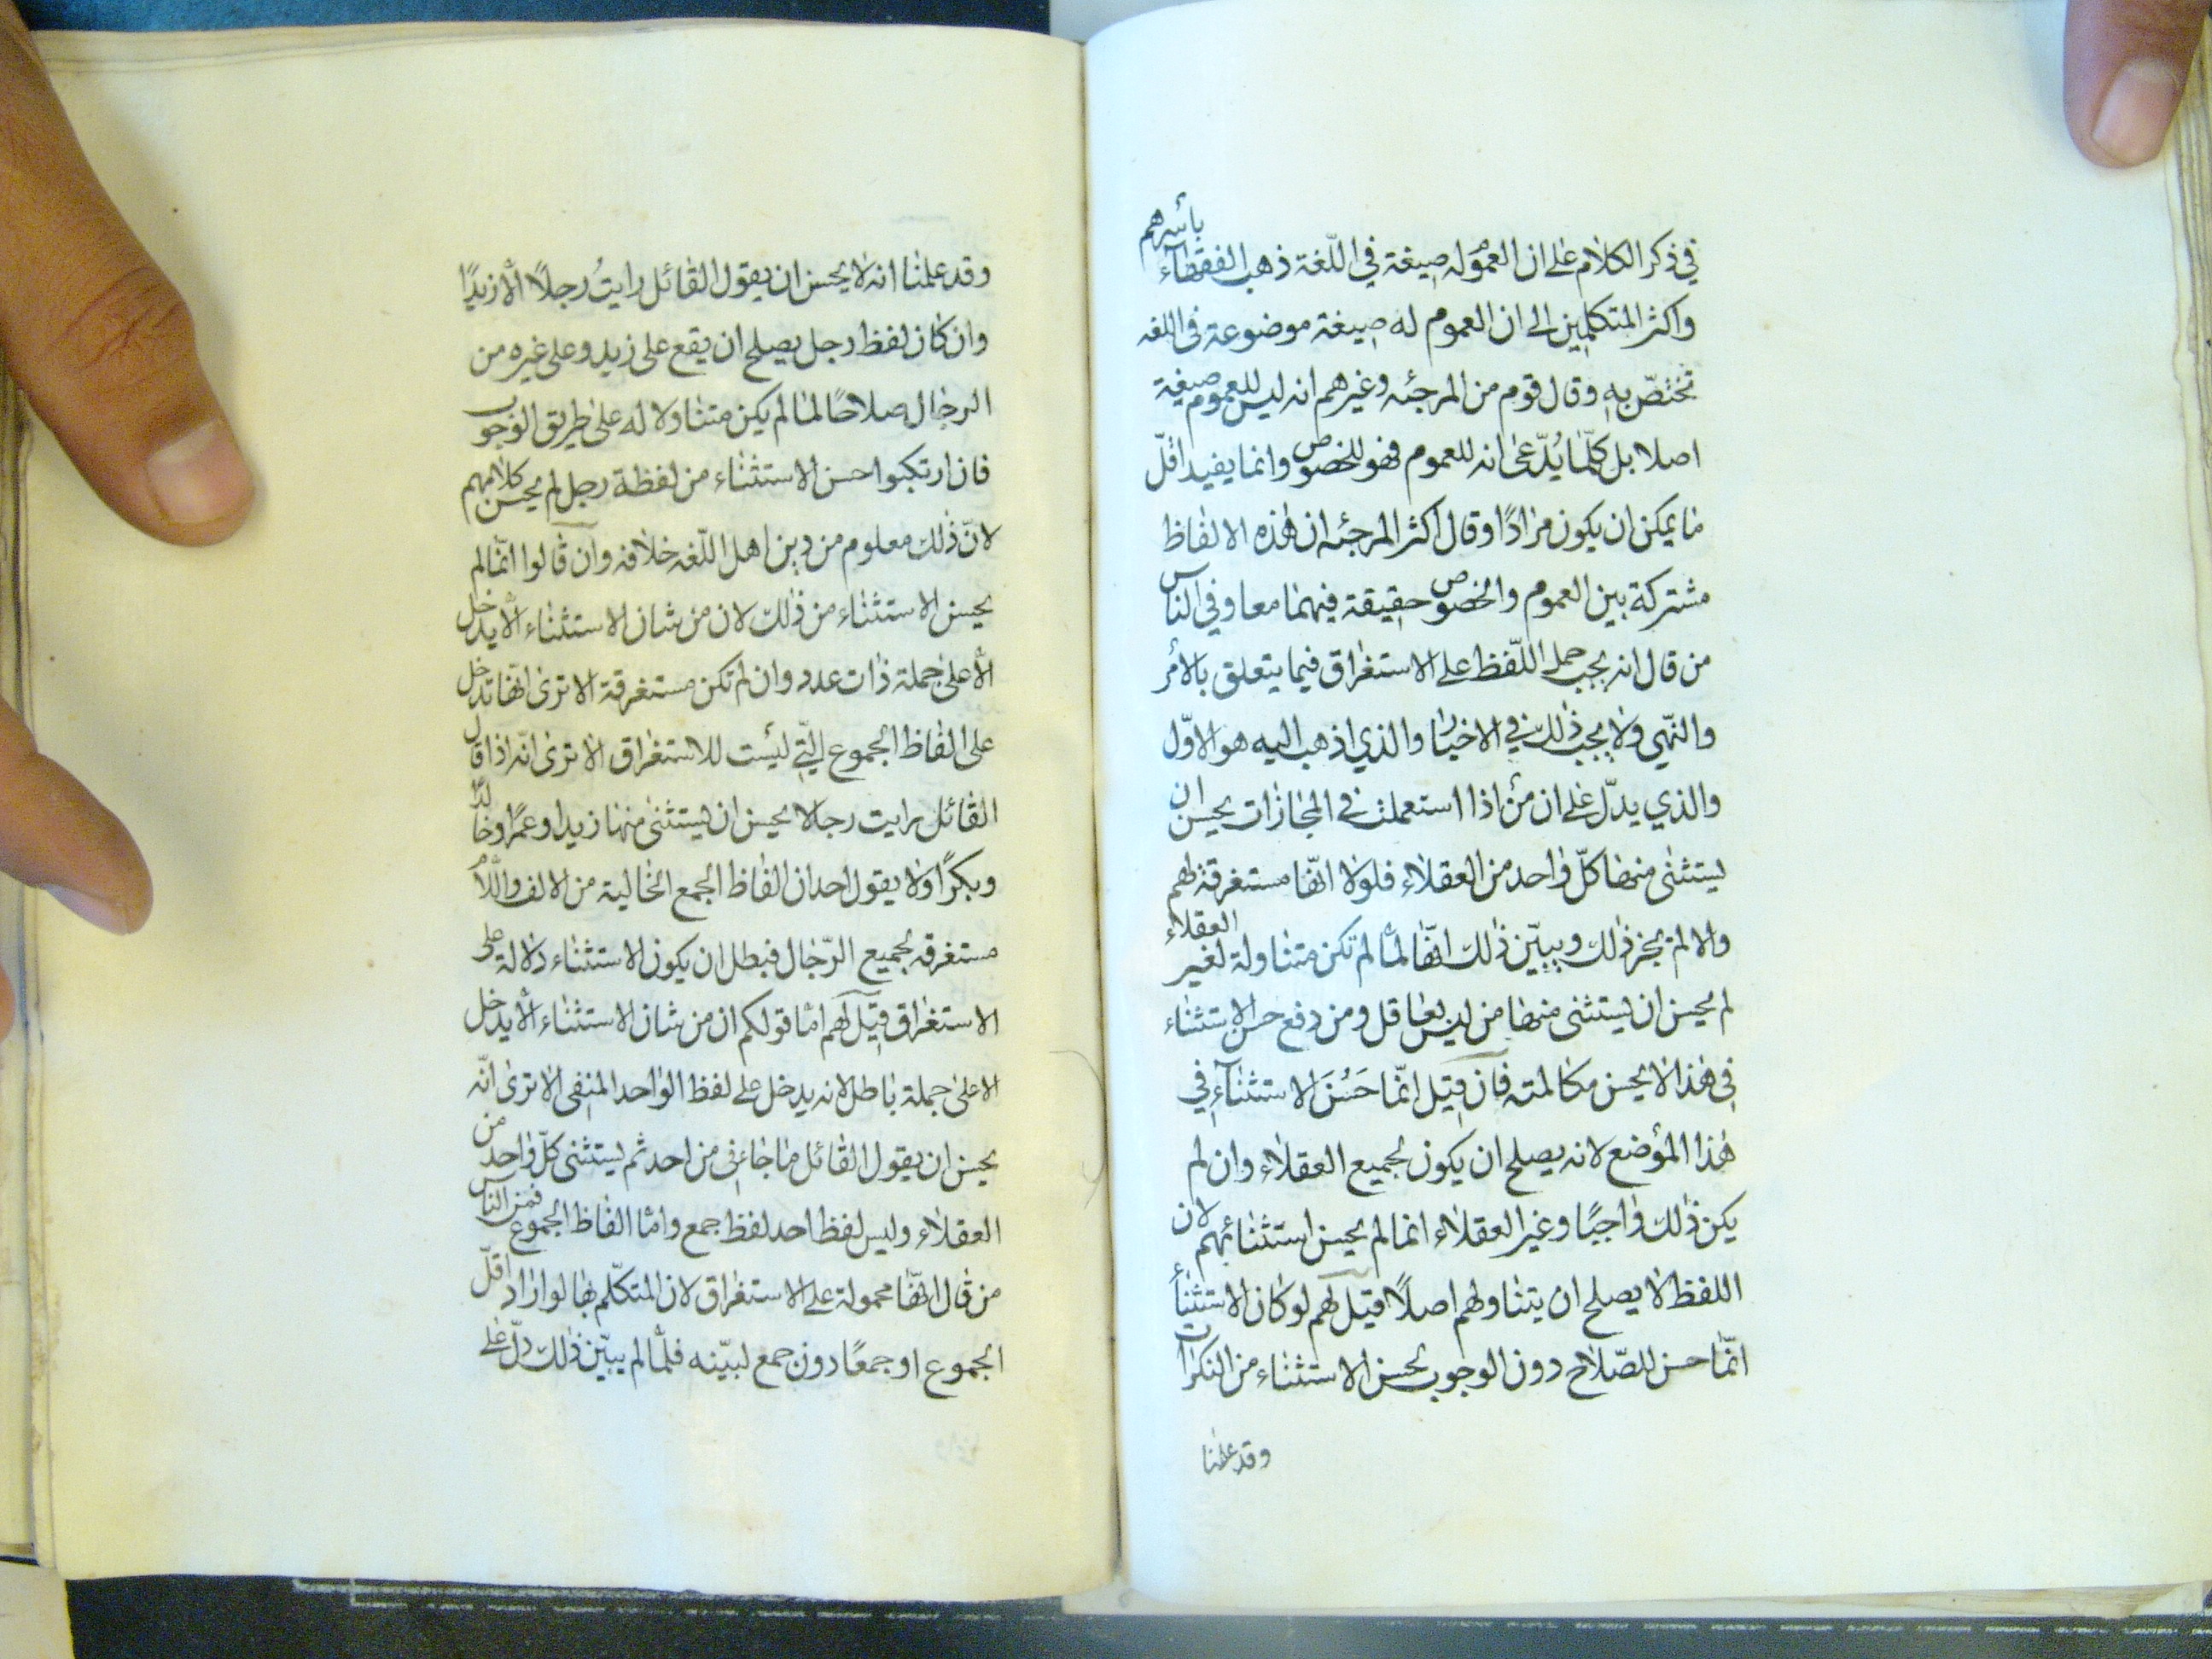 في ذكر الكلام على ان العموم له صيغة في اللّغة ذهب الفقهآء بأسرهم
واكثر المتكلمين الى ان العموم له صيغة موضوعة في اللغه
تختصّ به وقال قوم من المرجئه وغيرهم انه ليس للعموم صيغة
اصلا بل كلّما يُدّعى انه للعموم فهو للخصوص وانما يفيد اقلّ
ما يمكن ان يكون مرادًا وقال اكثر المرجئه ان هذه الالفاظ
مشتركة بين العموم والخصوص حقيقة فيهما معا وفي الناس
من قال انه يجب حمل اللّفظ على الاستغراق فيما يتعلق بالأمر
والنّهي ولا يجب ذلك في الاخبار والذي اذهب اليه هو الاوّل
والذي يدلّ على ان من اذا استعملت في المجازات يحسن ان
يستثنى منها كلّ واحد من العقلاء فلولا انّها مستغرقة لهم
والا لم يجز ذلك ويبيّن ذلك انّها لمّا لم تكن متناولة لغير العقلاء
لم يحسن ان يستثنى منها من ليس بعاقل ومن دفع حسن الاستثناء
في هذا لا يحسن مكالمته فان قيل انّما حَسُنَ الاستثناء في
هذا المؤضع لانه يصلح ان يكون لجميع العقلاء وان لم
يكن ذلك واجبًا وغير العقلاء انما لم يحسن استثنائهم لان
اللفظ لا يصلح ان يتناولهم اصلاً قيل لهم لو كان الاستثناء
انّما حسن للصّلاح دون الوجوب لحسن الاستثناء من النكرات
وقد علمنا
وقد علمنا انه لا يحسن ان يقول القائل رايتُ رجلاً الّا زيدًا
وان كان لفظ رجل يصلح ان يقع على زيد وعلى غيره من
الرجال صلاحًا لما لم يكن متناولا له على طريق الوجوب
فان ارتكبوا حسن الاستثناء من لفظة رجل لم يحسن كلامهم
لانّ ذلك معلوم من دين اهل اللّغه خلافه وان قالوا انّما لم
يحسن الاستثناء من ذلك لان من شان الاستثناء الّا يدخل
الّا على جملة ذات عدد وان لم تكن مستغرقة الا ترى انّها تدخل
على الفاظ الجموع الّتي ليست للاستغراق الا ترى انّه اذا قال
القائل رايت رجالا يحسن ان يستثنى منها زيدا وعمرًا وخالدًا
وبكرًا ولا يقول احد ان الفاظ الجمع الخالية من الالف واللّام
مستغرقه لجميع الرّجال فبطل ان يكون الاستثناء دلالة على
الاستغراق قيل لهم امّا قولكم ان من شان الاستثناء الّا يدخل
الا على جملة باطل لانه يدخل على لفظ الواحد المنفى الا ترى انّه
يحسن ان يقول القائل ما جائني من احد ثم يستثنى كلّ واحد من
العقلاء وليس لفظ احد لفظ جمع وامّا الفاظ الجموع فمن الناس
من قال انّها محمولة على الاستغراق لان المتكلّم بها لو اراد اقلّ
الجموع او جمعًا دون جمع لبيّنه فلمّا لم يبيّن ذلك دلّ على